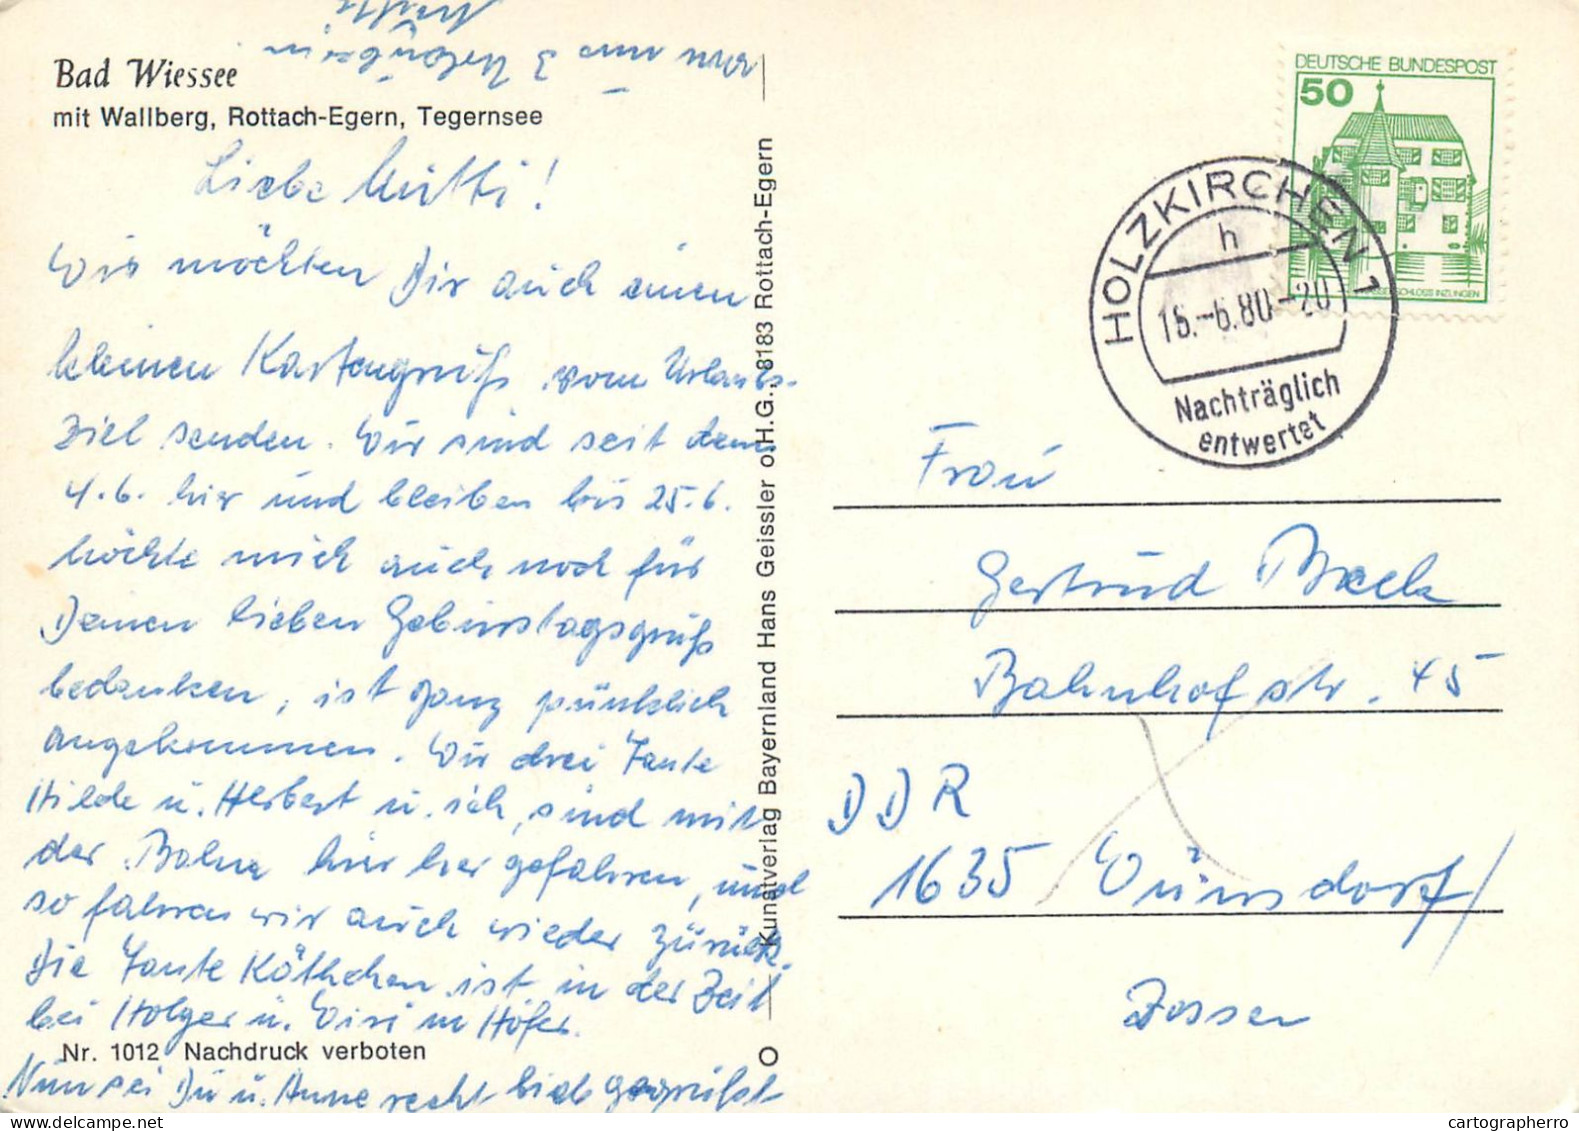 Bad Wiessee
mit Wallberg, Rottach-Egern, Tegernsee
Liebe Mutti!
Wir möchten Dir auch einen
kleinen Kartengruß vom Urlaubs-
Ziel senden. Wir sind seit dem
4.6. hier und bleiben bis 25.6.
Möchte mich auch noch für
Deinen lieben Geburtstagsgruß
bedanken, ist ganz pünktlich
angekommen. Wir drei Tante
Hilde u. Herbert u. ich, sind mit
der Bahn hier her gefahren, und
so fahren wir auch wieder zurück.
Die Tante Käthchen ist in der Zeit
bei Holger u. in
Nun sei Du u. Anne recht lieb gegrüßt
von uns 3
Nr. 1012 Nachdruck verboten
Kunstverlag Bayernland Hans Geissler o.H.G., 8183 Rottach-Egern
DEUTSCHE BUNDESPOST
50
WASSERSCHLOSS INZLINGEN
HOLZKIRCHEN 1
h
16.-6.80-20
Nachträglich
entwertet
Frau
Gertrud
Bahnhofstr. 45
DDR
1635 Wünsdorf/
Zossen
cartographerro